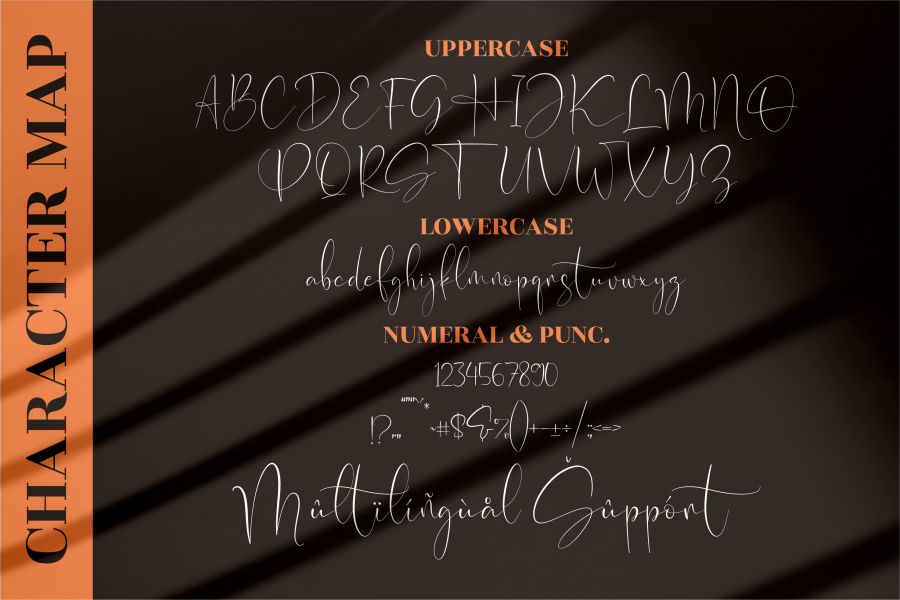 CHARACTER MAP
UPPERCASE
ABCDEFGHIJKLMNO
PQRSTUVWXYZ
LOWERCASE
abcdefghijklmnopqrstuvwxyz
NUMERAL & PUNC.
1234567890
!?,,„ ~#$&%()+−±÷/:;<=>
Mûltïlíñgùål Šûppórt